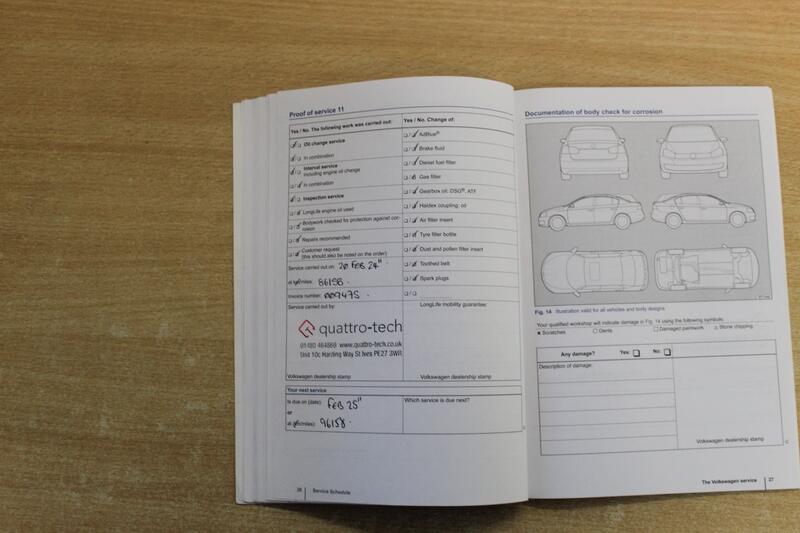 Proof of service 11
Yes / No. The following work was carried out:
Oil change service
In combination
Interval service
Including engine oil change
In combination
Inspection service
LongLife engine oil used
Bodywork checked for protection against cor-
rosion
Repairs recommended
Customer request
(this should also be noted on the order)
Service carried out on: 20 FEB 24"
at km/miles: 86158.
Invoice number:
Service carried out by:
quattro-tech
01480 464868 www.quattro-tech.co.uk
Unit 10c Harding Way St Ives PE27 3WR
Volkswagen dealership stamp
Yes / No. Change of:
AdBlue®
Brake fluid
Diesel fuel filter
Gas filter
Gearbox oil: DSG®, ATF
Haldex coupling: oil
Air filter insert
Tyre filler bottle
Dust and pollen filter insert
Toothed belt
Spark plugs
LongLife mobility guarantee:
Volkswagen dealership stamp
Your next service
Is due on (date): FEB 25"
or
at km/miles): 96158.
Which service is due next?
Service Schedule
Documentation of body check for corrosion
Fig. 14 Illustration valid for all vehicles and body designs
Your qualified workshop will indicate damage in Fig. 14 using the following symbols:
Scratches
Dents
Damaged paintwork
Stone chipping
Any damage? Yes: No:
Description of damage:
Volkswagen dealership stamp
The Volkswagen service 27